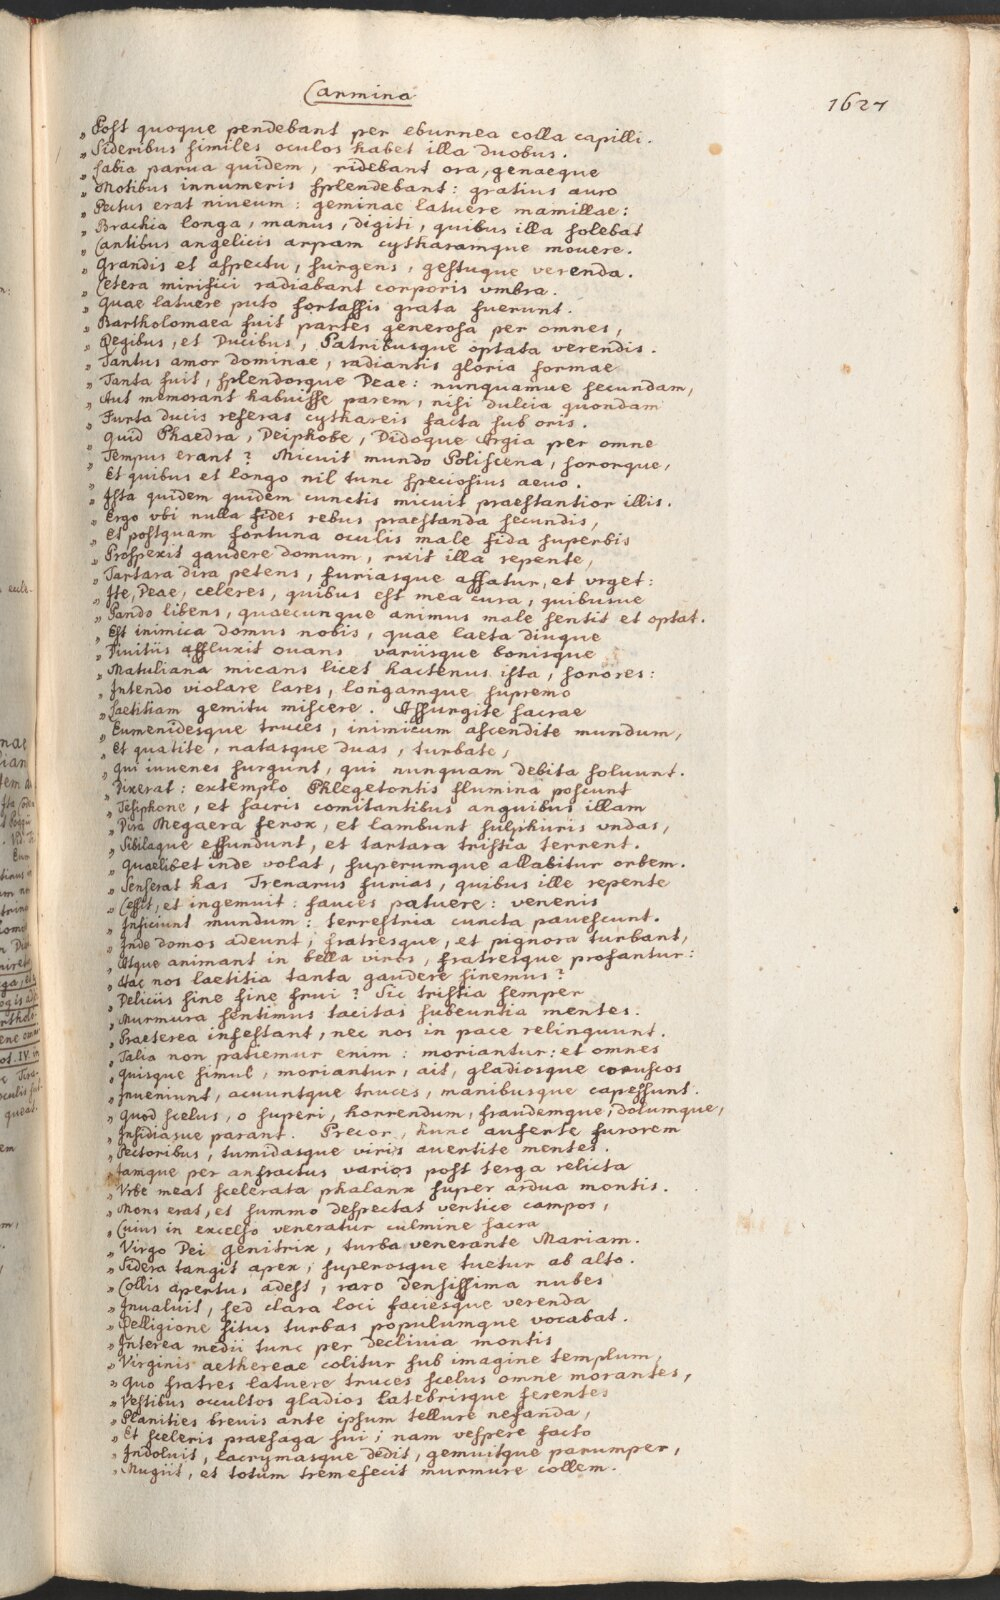 Carmina
1627
„ Post quoque pendebant per eburnea colla capilli.
„ Sideribus similes oculos habet illa duobus.
„ Labia parua quidem, ridebant ora, genaeque
„ Motibus innumeris splendebant: gratius auro
„ Pectus erat niueum: geminae latuere mamillae:
„ Brachia longa, manus, digiti, quibus illa solebat
„ Cantibus angelicis arpam cytharamque mouere.
„ Grandis et aspectu, surgens, gestuque verenda.
„ Cetera mirifici radiabant corporis vmbra.
„ Quae latuere puto fortassis grata fuerunt.
„ Bartholomaea fuit partes generosa per omnes,
„ Regibus, et Ducibus, Patribusque optata verendis.
„ Tantus amor dominae, radiantis gloria formae
„ Tanta fuit, splendorque Deae: nunquamue secundam,
„ Aut memorant habuisse parem, nisi dulcia quondam
„ Furta ducis referas cythareis facta sub oris.
„ Quid Phaedra, Deiphobe, Didoque Argia per omne
„ Tempus erant? Micuit mundo Poliscena, sororque,
„ Et quibus et longo nil tunc speciosius aeuo.
„ Ista quidem quidem cunctis micuit praestantior illis.
„ Ergo vbi nulla fides rebus praestanda secundis,
„ Et postquam fortuna oculis male fida superbis
„ Prospexit gaudere domum, ruit illa repente,
„ Tartara dira petens, furiasque affatur, et vrget:
„ Ite, Deae, celeres, quibus est mea cura, quibusue
„ Pando libens, quaecunque animus male sentit et optat.
„ Est inimica domus nobis, quae laeta diuque
„ Diuitiis affluxit ouans variisque bonisque
„ Matuliana micans licet hactenus ista, sorores:
„ Intendo violare lares, longamque supremo
„ Laetitiam gemitu miscere. Assurgite sacrae
„ Eumenidesque truces, inimicum ascendite mundum,
„ Et quatite, natasque duas, turbate,
„ Qui iuuenes surgunt, qui nunquam debita soluunt.
„ Dixerat: extemplo Phlegetontis flumina poscunt
„ Tesiphone, et sacris comitantibus anguibus illam
„ Dira Megaera ferox, et lambunt sulphuris vndas,
„ Sibilaque effundunt, et tartara tristia terrent.
„ Quaelibet inde volat, superumque allabitur orbem.
„ Senserat has Trenarus furias, quibus ille repente
„ Cessit, et ingemuit: fauces patuere: venenis
„ Inficiunt mundum: terrestria cuncta pauescunt.
„ Inde domos adeunt, fratresque, et pignora turbant,
„ Atque animant in bella viros, fratresque profantur:
„ Hac nos laetitia tanta gaudere sinemus?
„ Deliciis sine fine frui? Sic tristia semper
„ Murmura sentimus tacitas subeuntia mentes.
„ Praeterea infestant, nec nos in pace relinquunt.
„ Talia non patiemur enim: moriantur: et omnes
„ Quisque simul, moriantur, ait, gladiosque coruscos
„ Inueniunt, acuuntque truces, manibusque capessunt.
„ Quod scelus, o superi, horrendum, fraudemque, dolumque,
„ Insidiasue parant. Precor, hunc auferte furorem
„ Pectoribus, tumidasque viris auertite mentes.
„ Iamque per anfractus varios post terga relicta
„ Vrbe meat scelerata phalanx super ardua montis.
„ Mons erat, et summo despectat vertice campos,
„ Cuius in excelso veneratur culmine sacra
„ Virgo Dei genitrix, turba venerante Mariam.
„ Sidera tangit apex, superosque tuetur ab alto.
„ Collis apertus adest, raro densissima nubes
„ Inualuit, sed clara loci faciesque verenda
„ Relligione situs turbas populumque vocabat.
„ Interea medii tunc per decliuia montis
„ Virginis aethereae colitur sub imagine templum,
„ Quo fratres latuere truces scelus omne morantes,
„ Vestibus occultos gladios latebrisque ferentes
„ Planities breuis ante ipsum tellure nefanda,
„ Et sceleris praesaga sui; nam vespere facto
„ Indoluit, lacrymasque dedit, gemuitque parumper,
„ Mugiit, et totum tremefecit murmure collem.